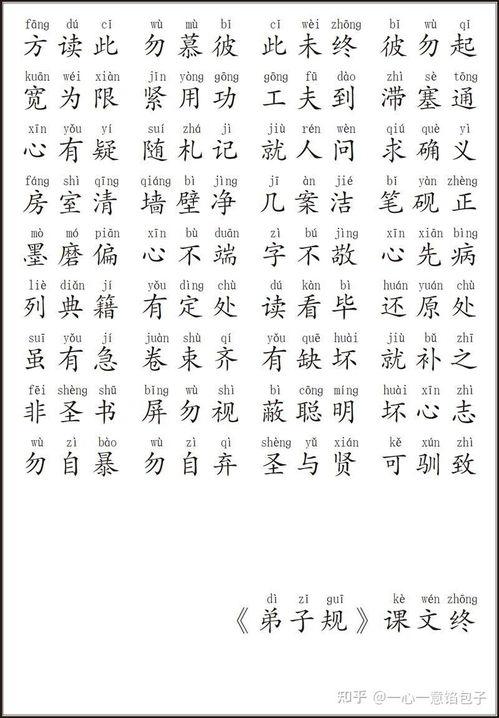 fāng dú cǐ wù mù bǐ cǐ wèi zhōng bǐ wù qǐ
方读此 勿慕彼 此未终 彼勿起
kuān wéi xiàn jǐn yòng gōng gōng fū dào zhì sè tōng
宽为限 紧用功 工夫到 滞塞通
xīn yǒu yí suí zhá jì jiù rén wèn qiú què yì
心有疑 随札记 就人问 求确义
fáng shì qīng qiáng bì jìng jī àn jié bǐ yàn zhèng
房室清 墙壁净 几案洁 笔砚正
mò mó piān xīn bù duān zì bú jìng xīn xiān bìng
墨磨偏 心不端 字不敬 心先病
liè diǎn jí yǒu dìng chù dú kàn bì huán yuán chù
列典籍 有定处 读看毕 还原处
suī yǒu jí juàn shù qí yǒu quē huài jiù bǔ zhī
虽有急 卷束齐 有缺坏 就补之
fēi shèng shū bǐng wù shì bì cōng míng huài xīn zhì
非圣书 屏勿视 蔽聪明 坏心志
wù zì bào wù zì qì shèng yǔ xián kě xùn zhì
勿自暴 勿自弃 圣与贤 可驯致
dì zǐ guī kè wén zhōng
《弟子规》课文终
知乎 @一心一意馅包子